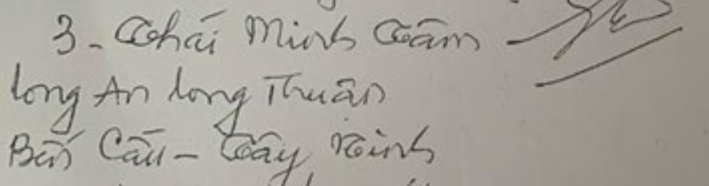 3- Thái Minh Tâm
Long An Long Thuận
Bến Cầu - Tây Ninh